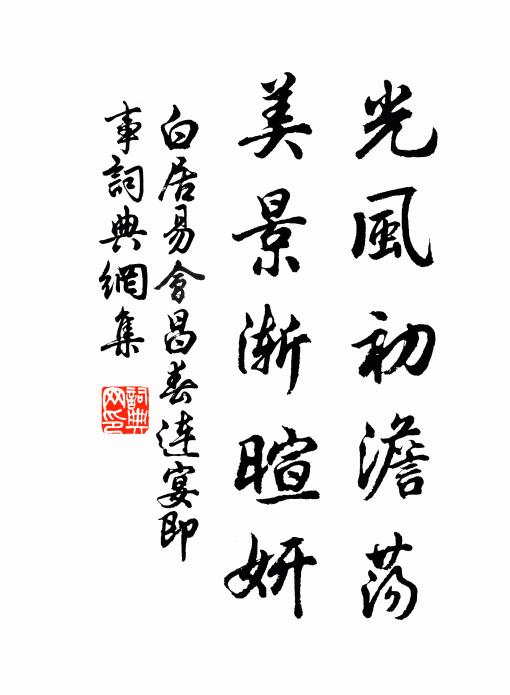 光風初澹蕩
美景漸暄妍
白居易會昌春連宴即
事詞典網集
詞典
网印